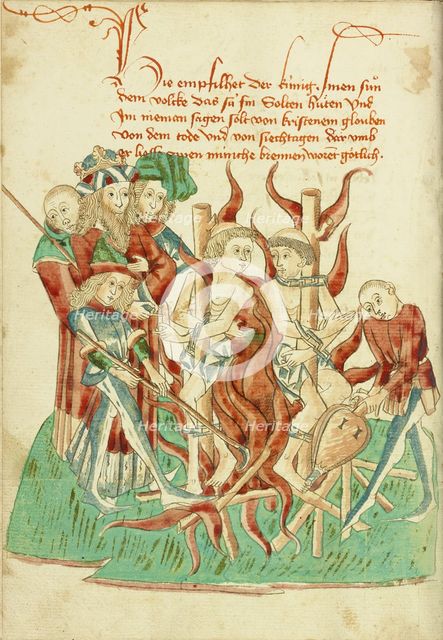 Hie empfilhet der künig sinen sun
dem volcke das sü sin Solten hüten Und
Im nieman sagen solt von kristenem glouben
Von dem tode und von siechtagen dar umb
er hatte zwen münche brennen worent götlich.
Heritage
Heritage
Heritage
Heritage
Heritage
Heritage
Heritage
Heritage
Heritage